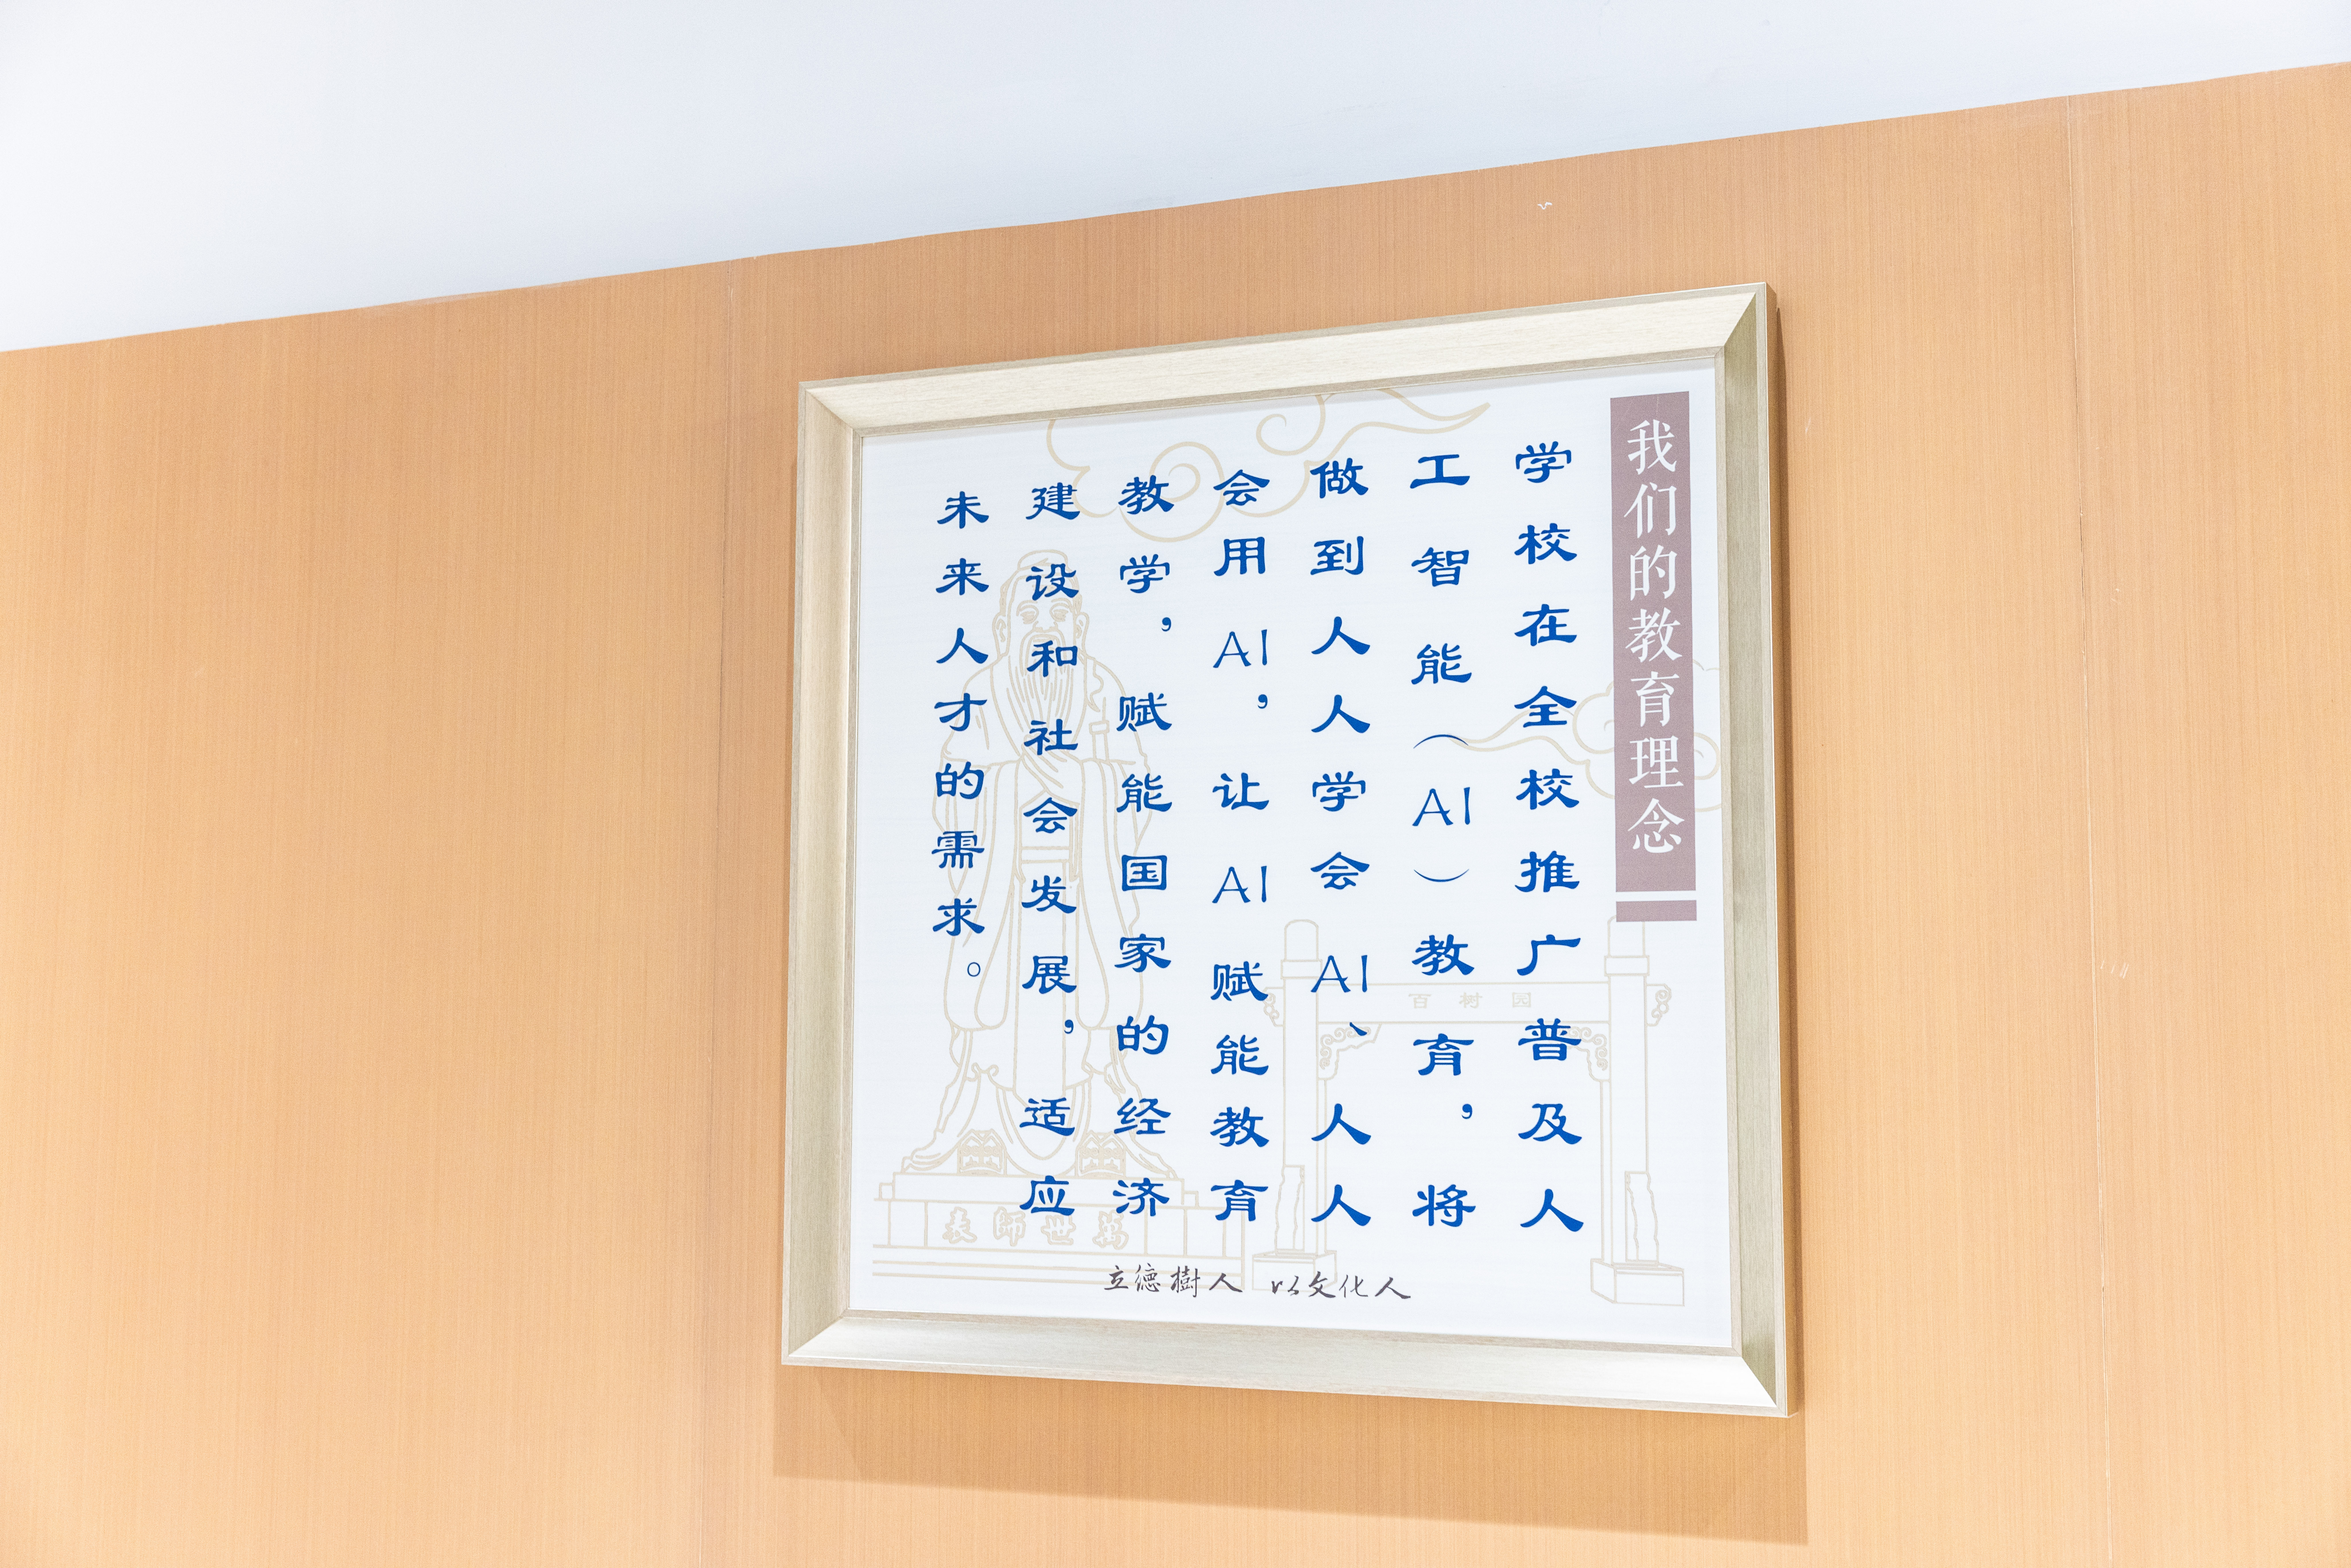 我们的教育理念
学校在全校推广普及人
工智能（AI）教育，将
做到人人学会AI、人人
会用AI，让AI赋能教育
教学，赋能国家的经济
建设和社会发展，适应
未来人才的需求。
百树园
表師世萬
立德樹人 以文化人